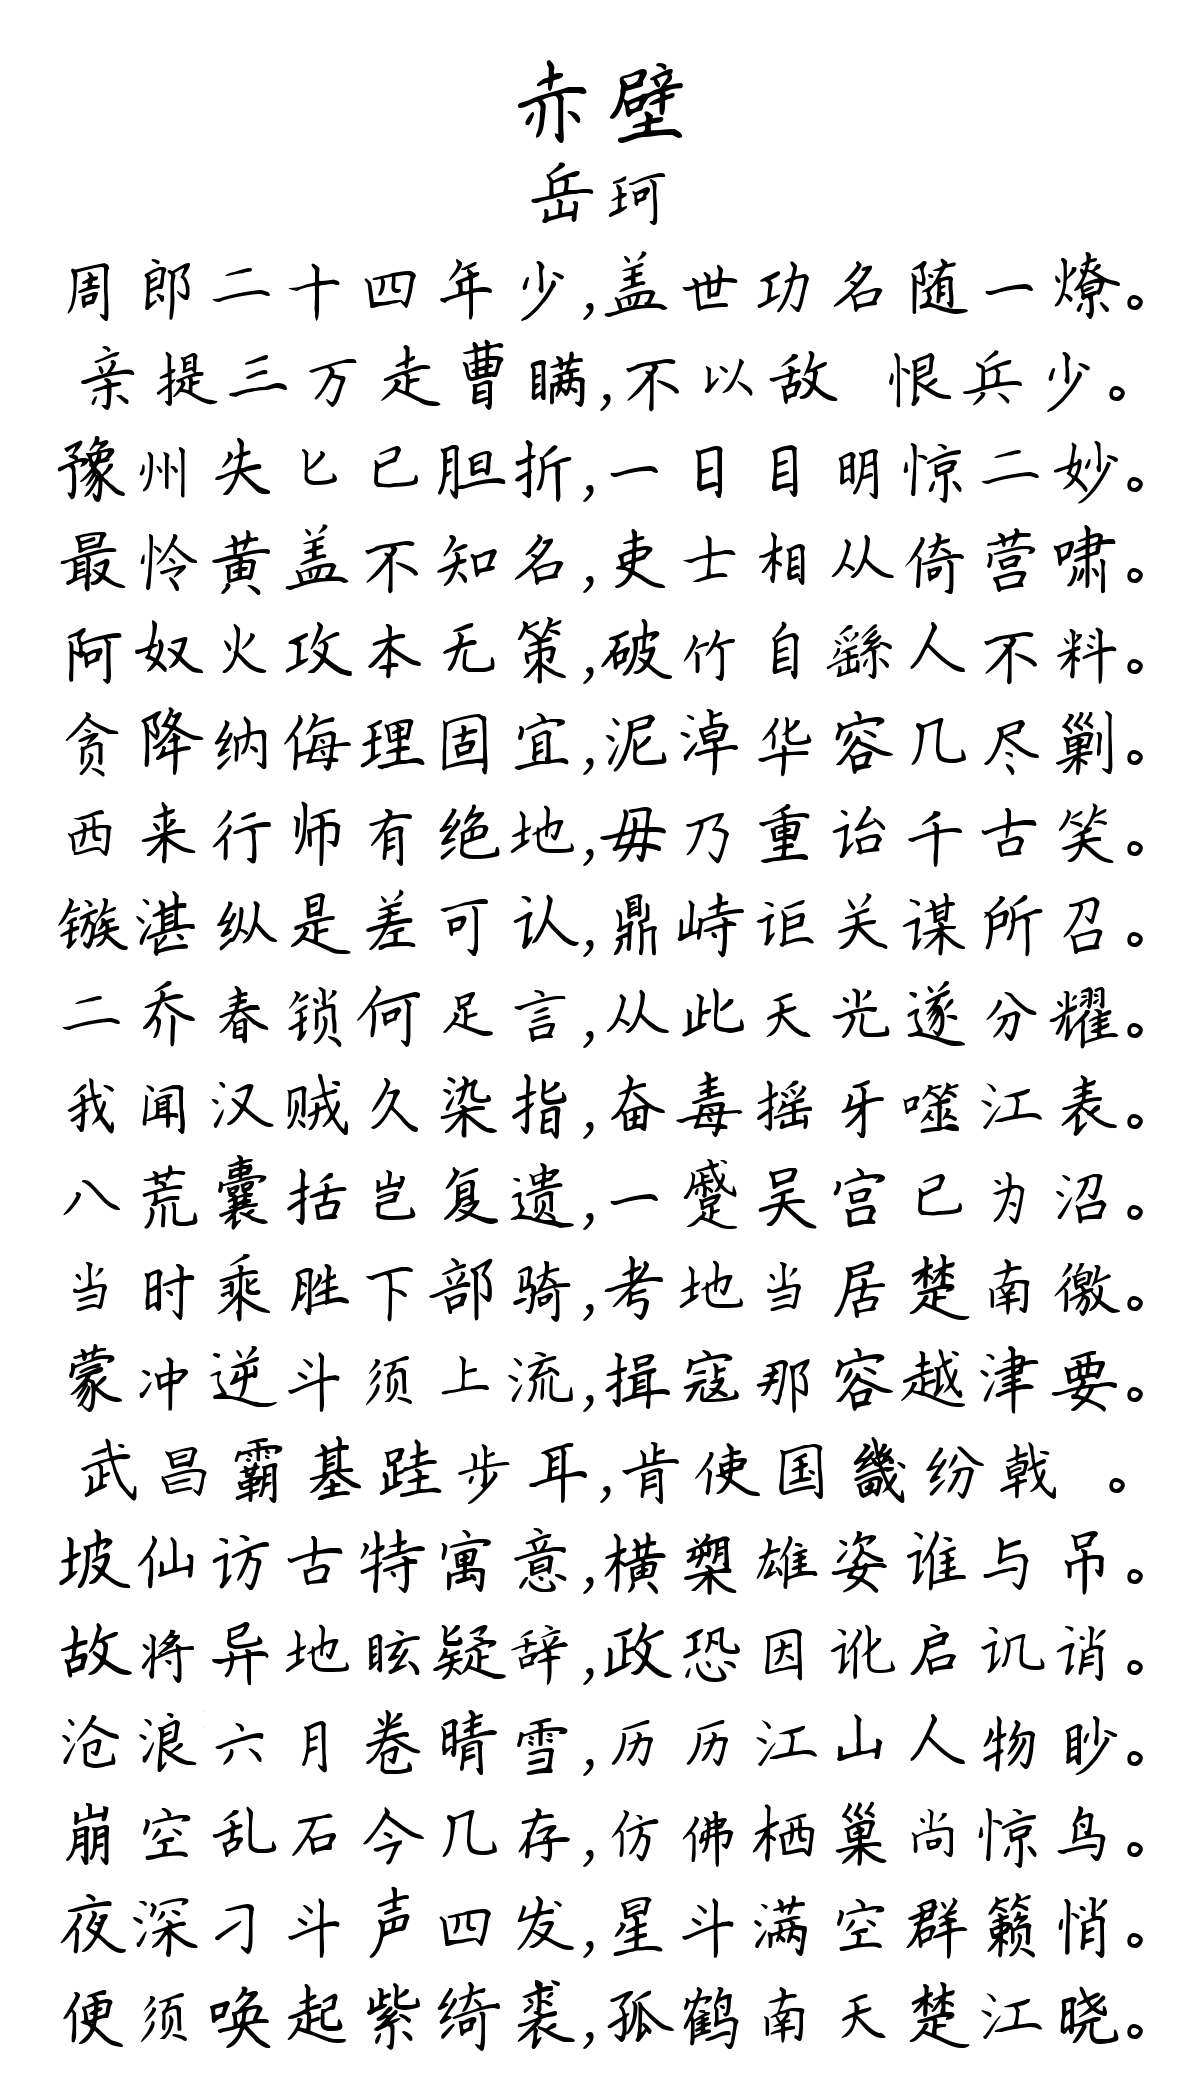 赤壁
岳珂
周郎二十四年少,盖世功名随一燎。
亲提三万走曹瞒,不以敌 恨兵少。
豫州失匕已胆折,一日目明惊二妙。
最怜黄盖不知名,吏士相从倚营啸。
阿奴火攻本无策,破竹自繇人不料。
贪降纳侮理固宜,泥淖华容几尽剿。
西来行师有绝地,毋乃重诒千古笑。
镞湛纵是差可认,鼎峙讵关谋所召。
二乔春锁何足言,从此天光遂分耀。
我闻汉贼久染指,奋毒摇牙噬江表。
八荒囊括岂复遗,一蹙吴宫已为沼。
当时乘胜下部骑,考地当居楚南徼。
蒙冲逆斗须上流,揖寇那容越津要。
武昌霸基跬步耳,肯使国畿纷戟 。
坡仙访古特寓意,横槊雄姿谁与吊。
故将异地眩疑辞,政恐因讹启讥诮。
沧浪六月卷晴雪,历历江山人物眇。
崩空乱石今几存,仿佛栖巢尚惊鸟。
夜深刁斗声四发,星斗满空群籁悄。
便须唤起紫绮裘,孤鹤南天楚江晓。